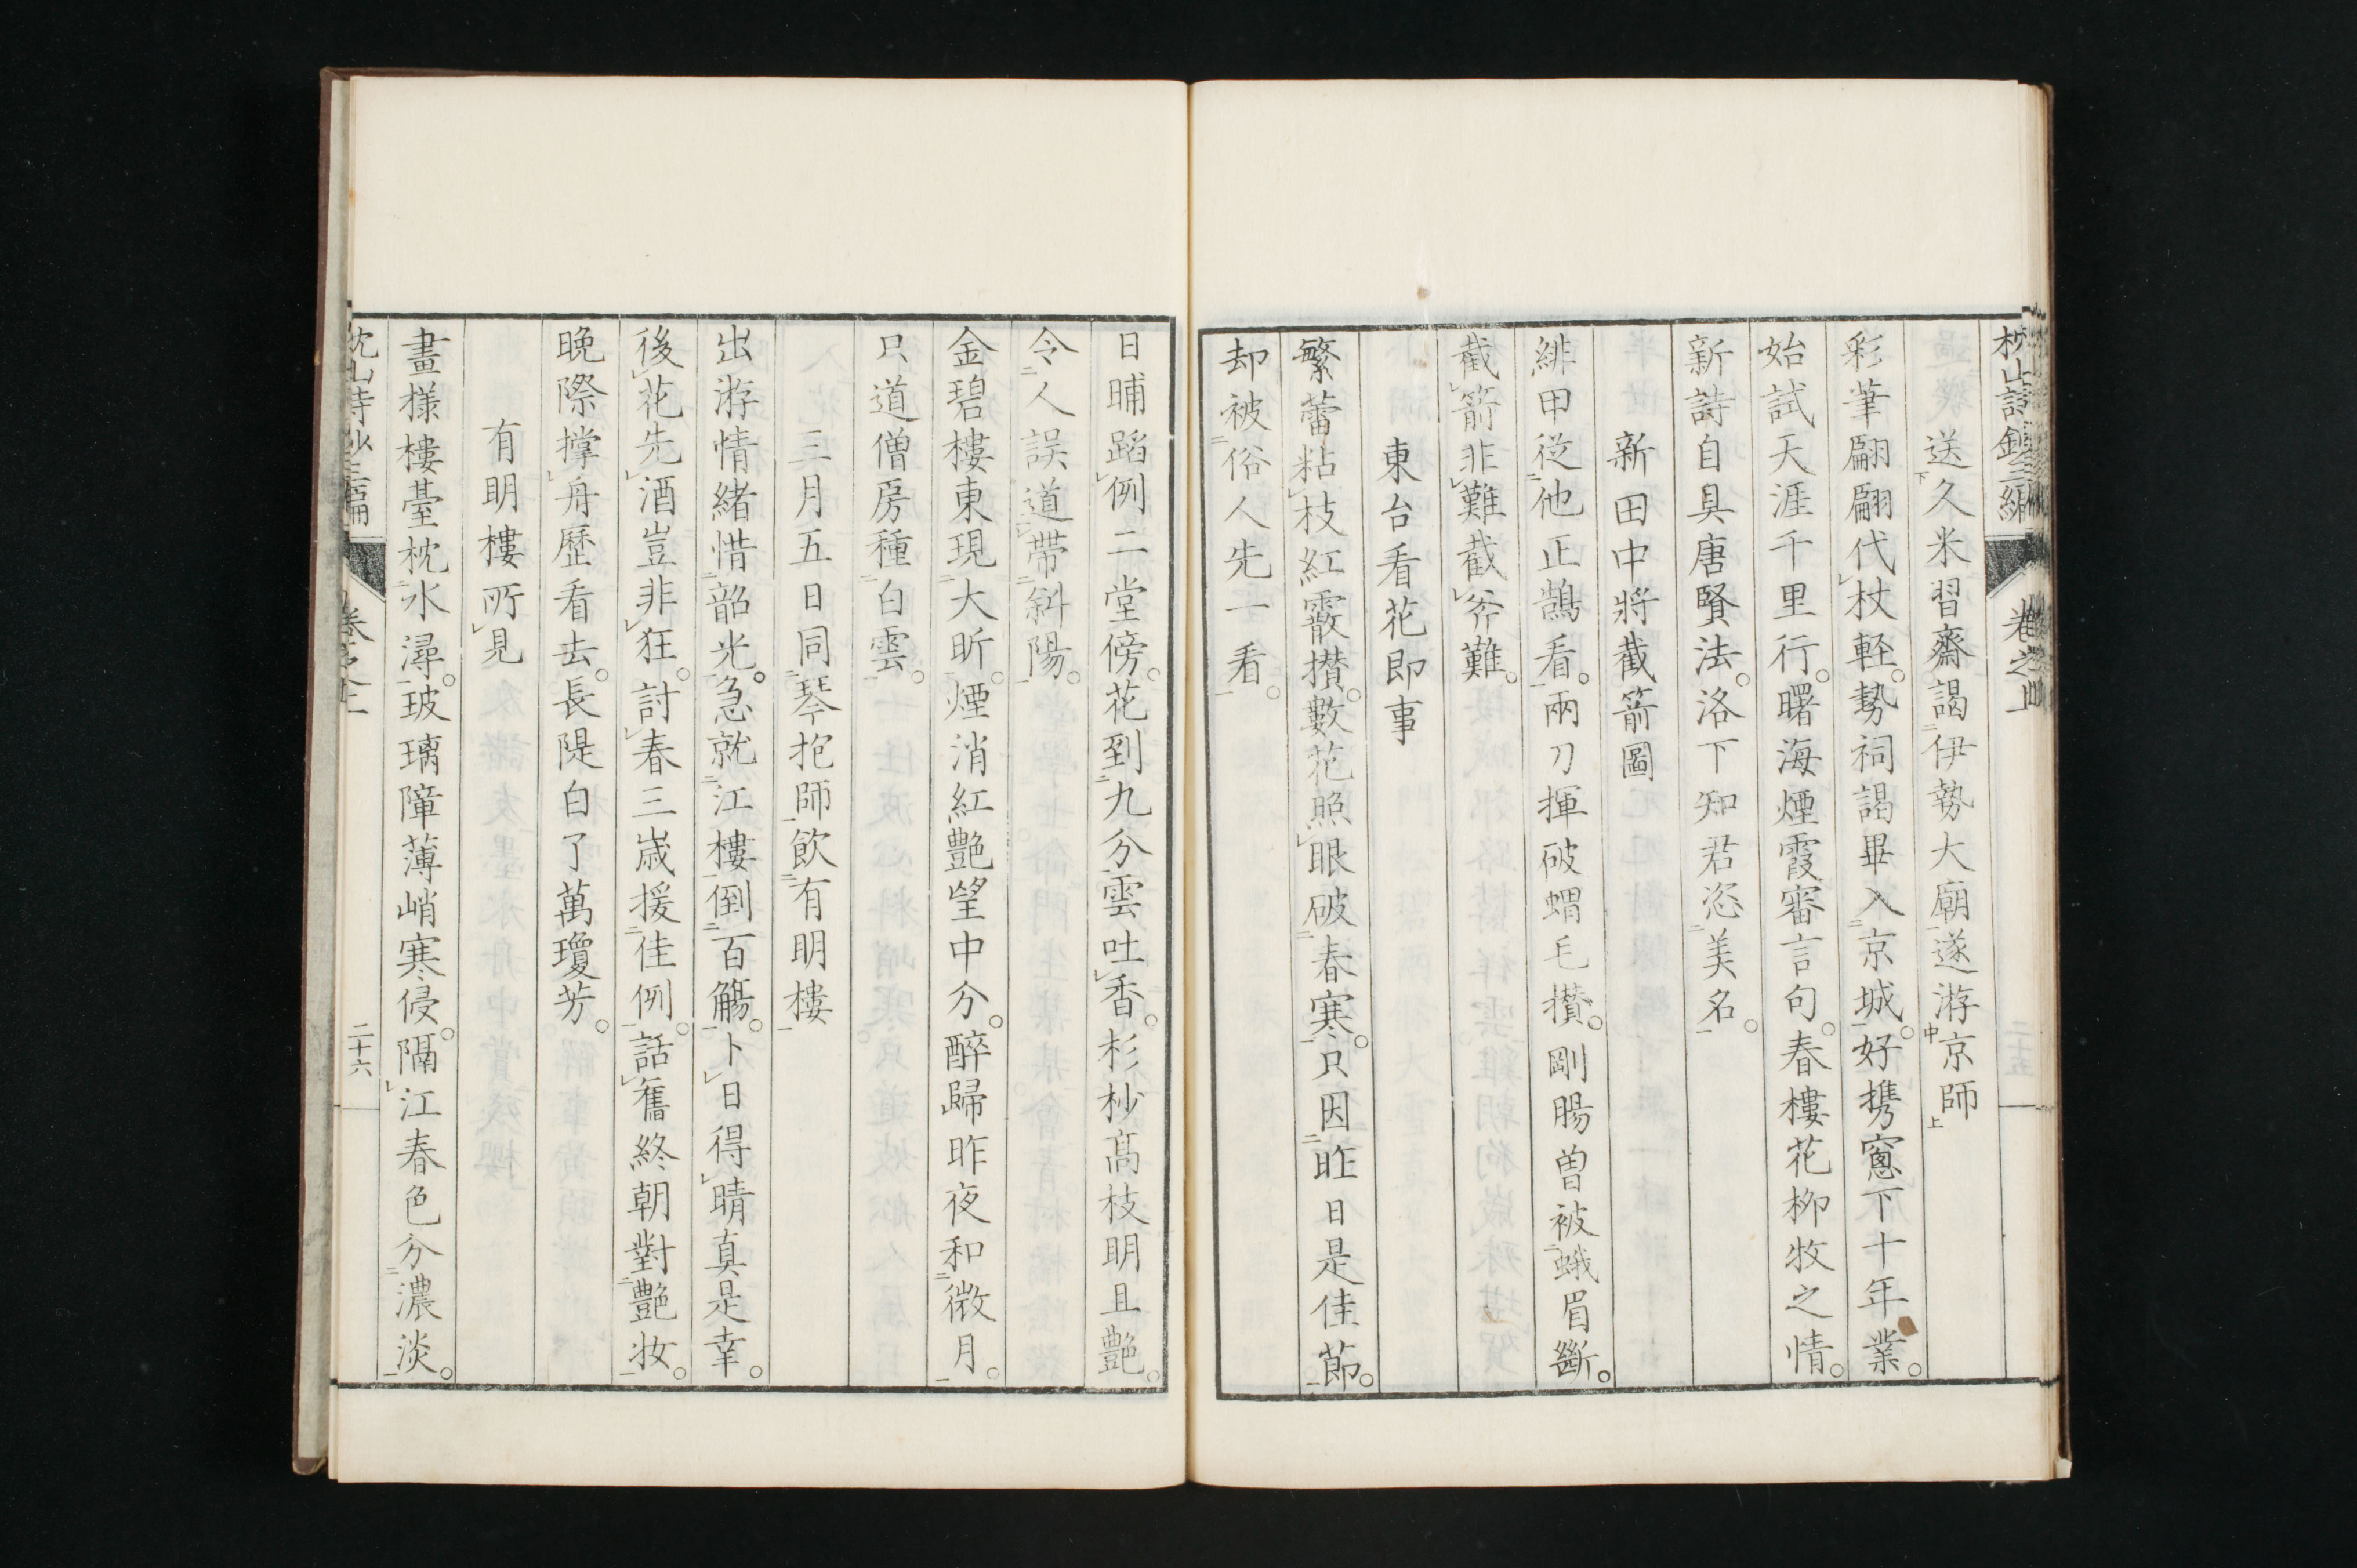 枕山詩鈔三編 卷之上
送久米習齋謁伊勢大廟遂游京師
彩筆翩翩代杖軽。勢祠謁畢入京城。好携窻下十年業。
始試天涯千里行。曙海煙霞審言句。春樓花柳牧之情。
新詩自具唐賢法。洛下知君恣美名。
新田中將截箭圖
緋甲從他正鵠看。兩刀揮破蝟毛攅。剛腸曽被蛾眉斷。
截箭非難截斧難。
東台看花即事
繁蕾粘枝紅霰攅。數花照眼破春寒。只因昨日是佳節。
却被俗人先一看。
日晡蹈例二堂傍。花到九分雲吐香。杉杪髙枝明且艶。
令人誤道帶斜陽。
金碧樓東現大昕。煙消紅艶望中分。醉歸昨夜和微月。
只道僧房種白雲。
三月五日同琴抱師飲有明樓
出游情緒惜韶光。急就江樓倒百觴。卜日得晴真是幸。
後花先酒豈非狂。討春三歳援佳例。話舊終朝對艶妝。
晚際撑舟歷看去。長隄白了萬瓊芳。
有明樓所見
畫樣樓臺枕水潯。玻璃障薄峭寒侵。隔江春色分濃淡。
枕山詩鈔三編 卷之上 二十六